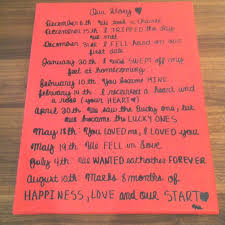 Our Story
December 6th: We took a chance
December 15th: I TRIPPED the day
we met
December 31st: I FELL head on our
first date
January 30th: I was SWEPT off my
feet at homecoming
February 10th: You became MINE
February 14th: I received a heart and
a rose (your HEART)
April 30th: We saw the Lucky one, but
we became the LUCKY ONES
May 18th: You LOVED me, & LOVED you
May 19th: We FELL in Love
July 4th: We WANTED eachother FOREVER
August 10th: Marks 8 months of
HAPPINESS, LOVE and our START